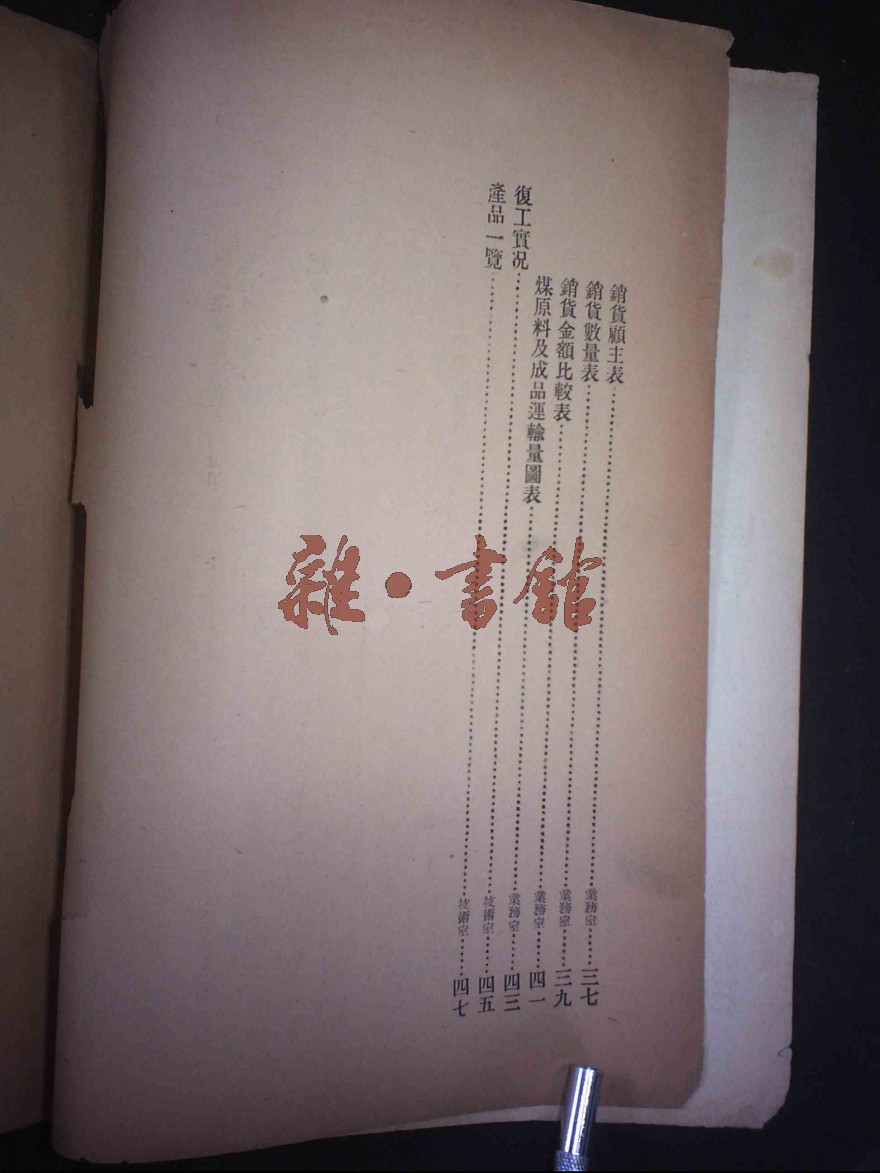 銷貨顧主表……業務室……三七
銷貨數量表……業務室……三九
銷貨金額比較表……業務室……四一
煤原料及成品運輸量圖表……業務室……四三
復工實況……技術室……四五
產品一覽……技術室……四七
雜·書館